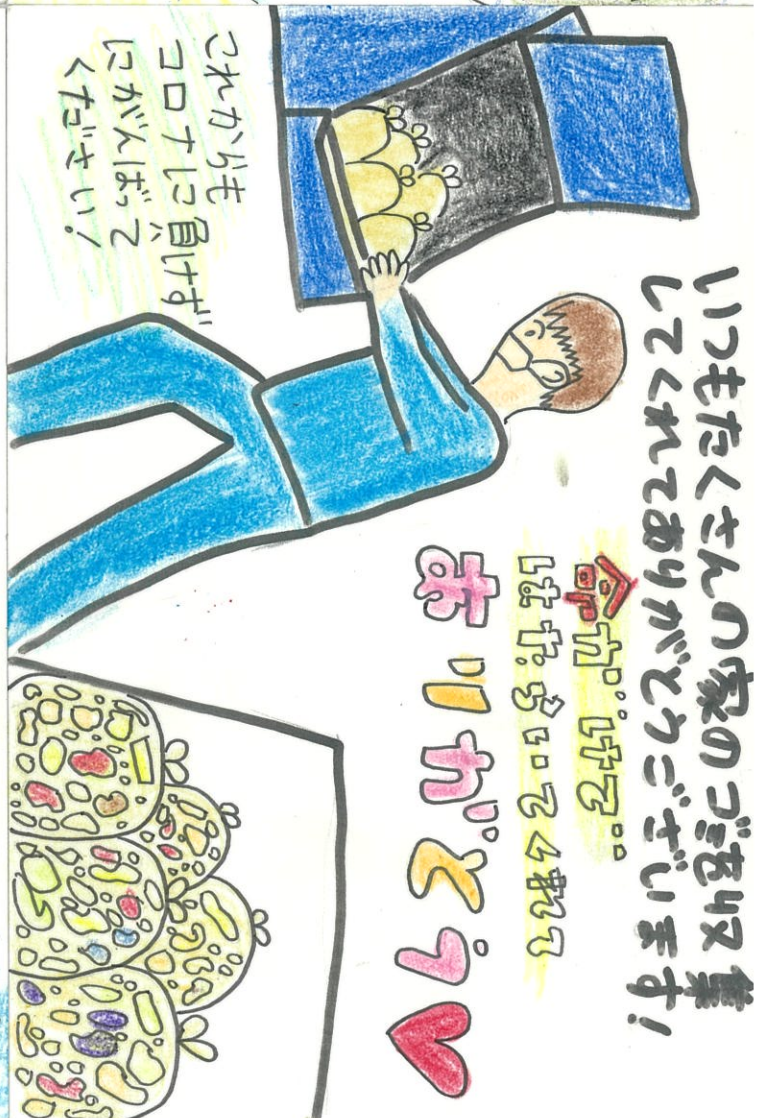 いつもたくさんの家のゴミを収集
してくれてありがとうございます!
命がけで..
はたらいてくれて
ありがとう♥
これからも
コロナに負けず
にがんばって
ください!